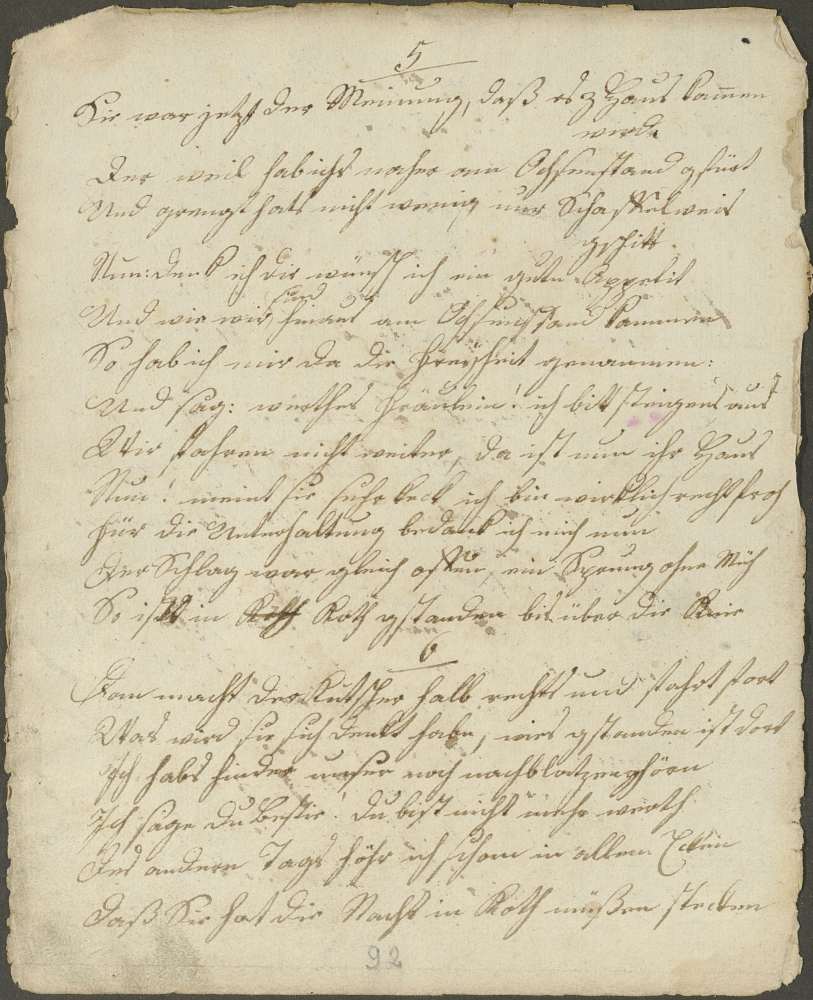 5
Sie war jetzt der Meinung, daß es z Haus kom̄en
wird.
Der weil hab ichs naher am Ochsenstand gfürt
Und grengt hats nicht wenig nur Schaffelweis
gschitt.
Nun: denk ich dir wünsch ich ein guten Appetit
Und wie wir sind hinaus am Ochsenstand kommen
So hab ich mir da die Freyheit genommen:
Und sag: werthes Fräulein! ich bitt steigens aus
Wir fahren nicht weiter, da ist nun ihr Haus
Nun! meint sie sehr keck ich bin wirklich recht froh
Für die Unterhaltung bedank ich mich nun
Der Schlag war gleich offen, ein Sprung ohne Müh
So ists in Koth gstanden bis über die Knie
6
Dan macht der Kutscher halb rechts und fahrt fort
Was wird sie sich denkt habn, wies gstanden ist dort
Ich habs hinder unser noch nachblatzen ghörn
Ich sage du Bestie! du bist nicht mehr werth
Des andern Tags hör ich schon in allen Ecken
Daß Sie hat die Nacht in Koth müßen stecken
92